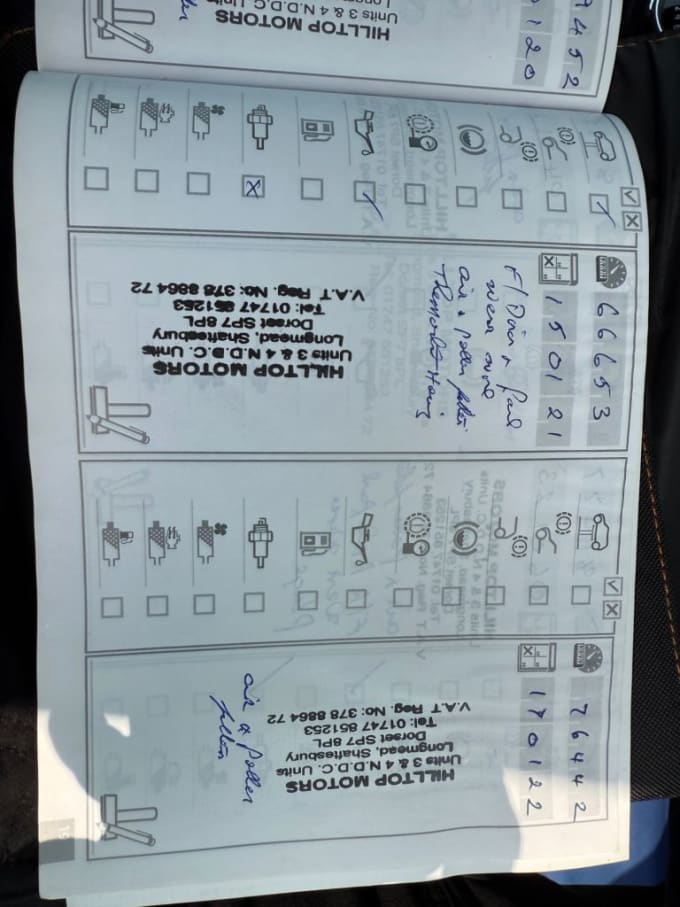 7452
0120
HILLTOP MOTORS
Units 3 & 4 N.D.D.C. Units
66653
150121
F/Disc & Pad
wear
air & pollen filter
HILLTOP MOTORS
Units 3 & 4 N.D.D.C. Units
Longmead, Shaftesbury
Dorset SP7 8PL
Tel: 01747 851253
V.A.T Reg. No: 378 8864 72
76442
170122
HILLTOP MOTORS
Units 3 & 4 N.D.D.C. Units
Longmead, Shaftesbury
Dorset SP7 8PL
Tel: 01747 851253
V.A.T Reg. No: 378 8864 72
air & Pollen
filter